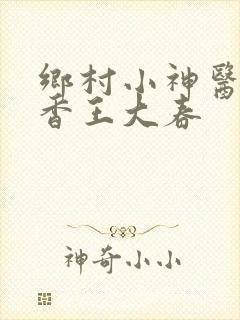 鄉村小神醫
香王大春
神奇小小